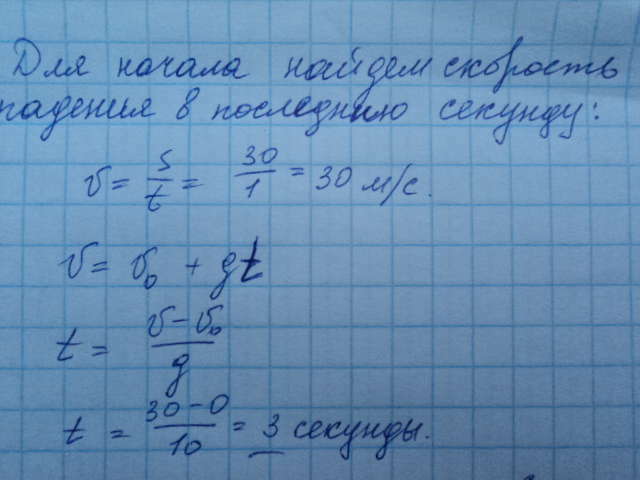 Для начала найдем скорость
падения в последнюю секунду:
v = s/t = 30/1 = 30 м/с.
v = v₀ + gt
t = v - v₀/g
t = 30 - 0/10 = 3 секунды.